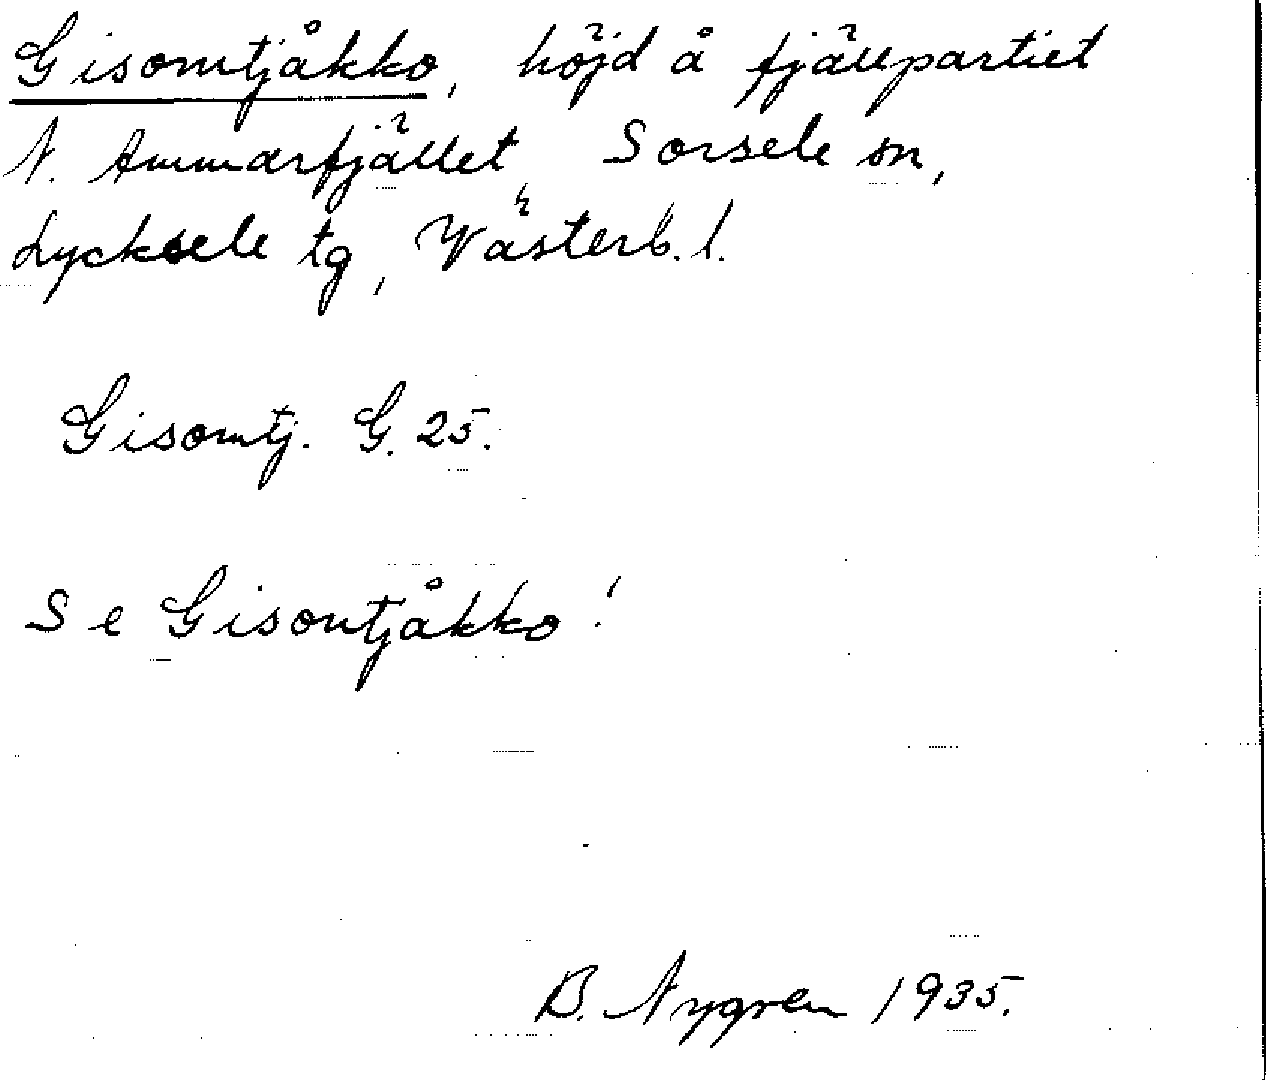 Gisomtjåkko, höjd å fjällpartiet
N. Ammarfjället, Sorsele sn,
Lycksele tg, Västerb. l.
Gisomtj. G. 25.
Se Gisontjåkko!
B. Nygren 1935.